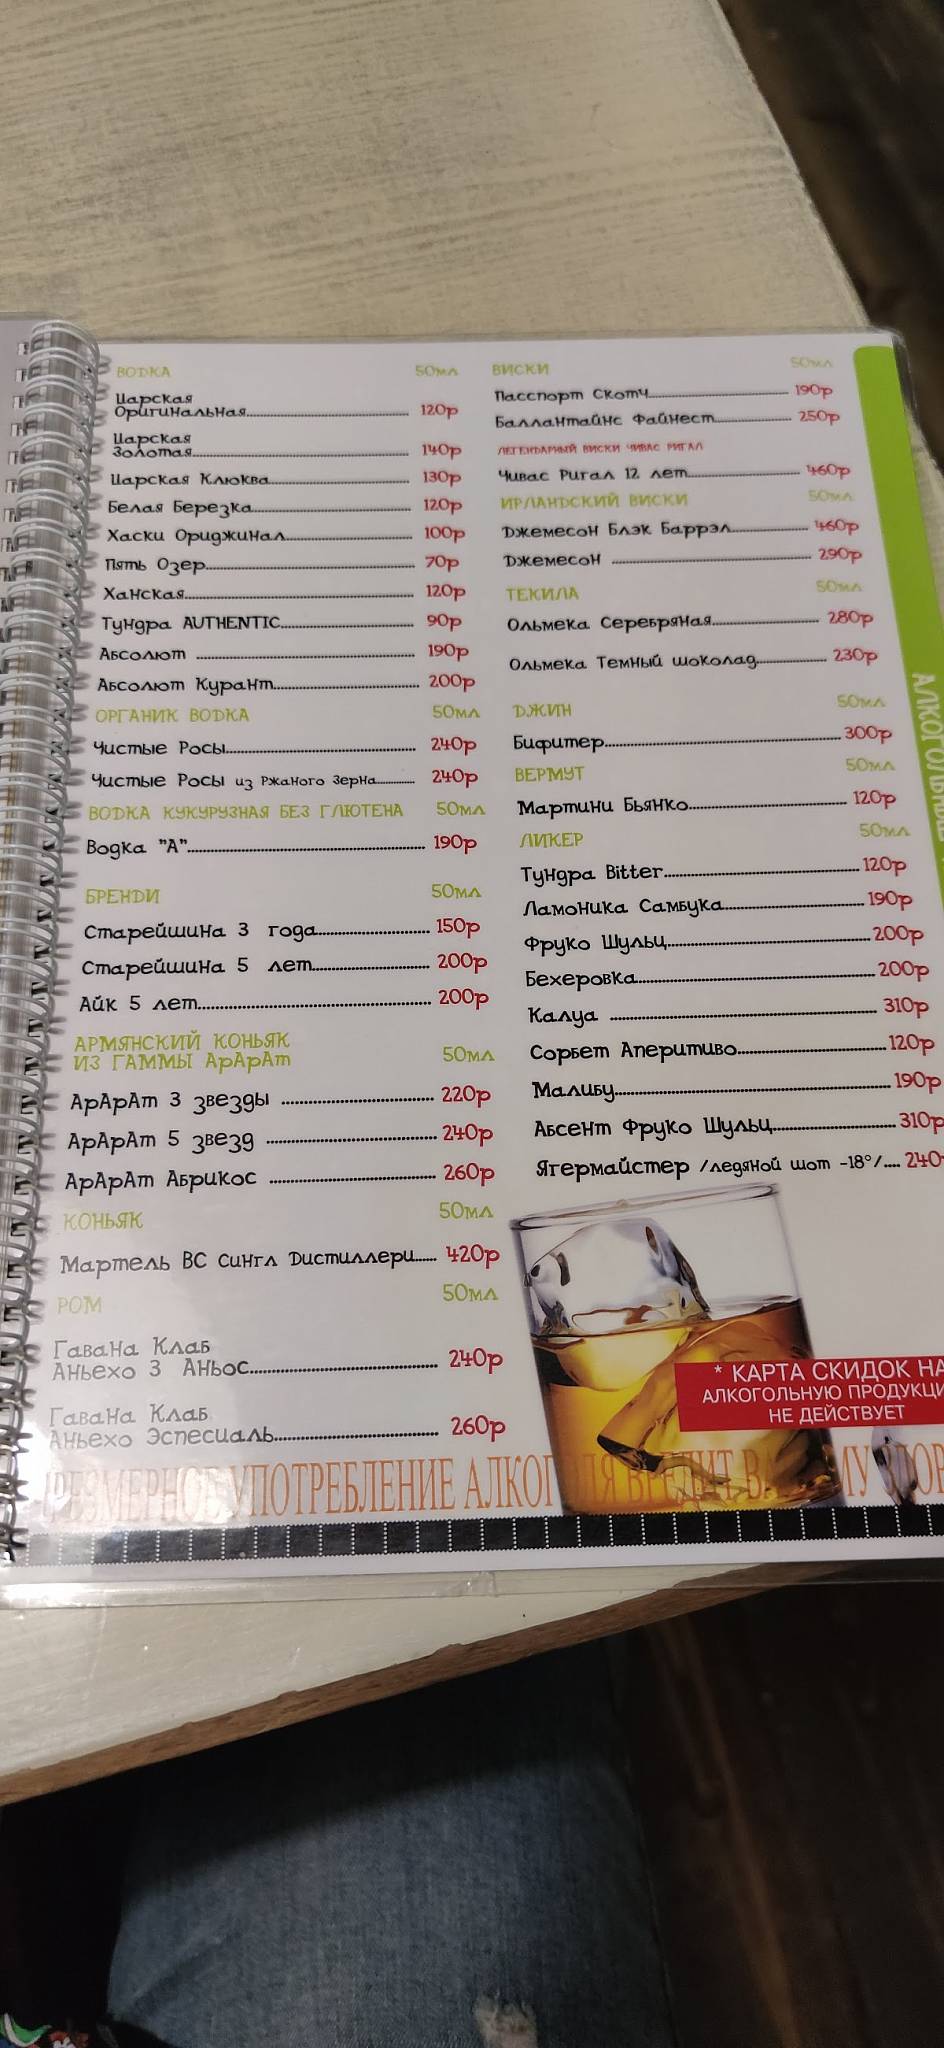 ВОДКА 50мл
Царская
Оригинальная 120р
Царская
Золотая 140р
Царская Клюква 130р
Белая Березка 120р
Хаски Ориджинал 100р
Пять Озер 70р
Ханская 120р
Тундра AUTHENTIC 90р
Абсолют 190р
Абсолют Курант 200р
ОРГАНИК ВОДКА 50мл
Чистые Росы 240р
Чистые Росы из Ржаного Зерна 240р
ВОДКА КУКУРУЗНАЯ БЕЗ ГЛЮТЕНА 50мл
Водка "А" 190р
БРЕНДИ 50мл
Старейшина 3 года 150р
Старейшина 5 лет 200р
Айк 5 лет 200р
АРМЯНСКИЙ КОНЬЯК
ИЗ ГАММЫ АрАрАт 50мл
АрАрАт 3 звезды 220р
АрАрАт 5 звезд 240р
АрАрАт Абрикос 260р
КОНЬЯК 50мл
Мартель ВС Сингл Дистиллери 420р
РОМ 50мл
Гавана Клаб
Аньехо 3 Аньос 240р
Гавана Клаб
Аньехо Эспесиаль 260р
ВИСКИ 50мл
Пасспорт Скотч 190р
Баллантайнс Файнест 250р
ЛЕГЕНДАРНЫЙ ВИСКИ ЧИВАС РИГАЛ
Чивас Ригал 12 лет 460р
ИРЛАНДСКИЙ ВИСКИ 50мл
Джемесон Блэк Баррэл 460р
Джемесон 290р
ТЕКИЛА 50мл
Ольмека Серебряная 280р
Ольмека Темный шоколад 230р
ДЖИН 50мл
Бифитер 300р
ВЕРМУТ 50мл
Мартини Бьянко 120р
ЛИКЕР 50мл
Тундра Bitter 120р
Ламоника Самбука 190р
Фруко Шульц 200р
Бехеровка 200р
Калуа 310р
Сорбет Аперитиво 120р
Малибу 190р
Абсент Фруко Шульц 310р
Ягермайстер /ледяной шот -18°/ 240
* КАРТА СКИДОК НА
АЛКОГОЛЬНУЮ ПРОДУКЦИ
НЕ ДЕЙСТВУЕТ
УПОТРЕБЛЕНИЕ